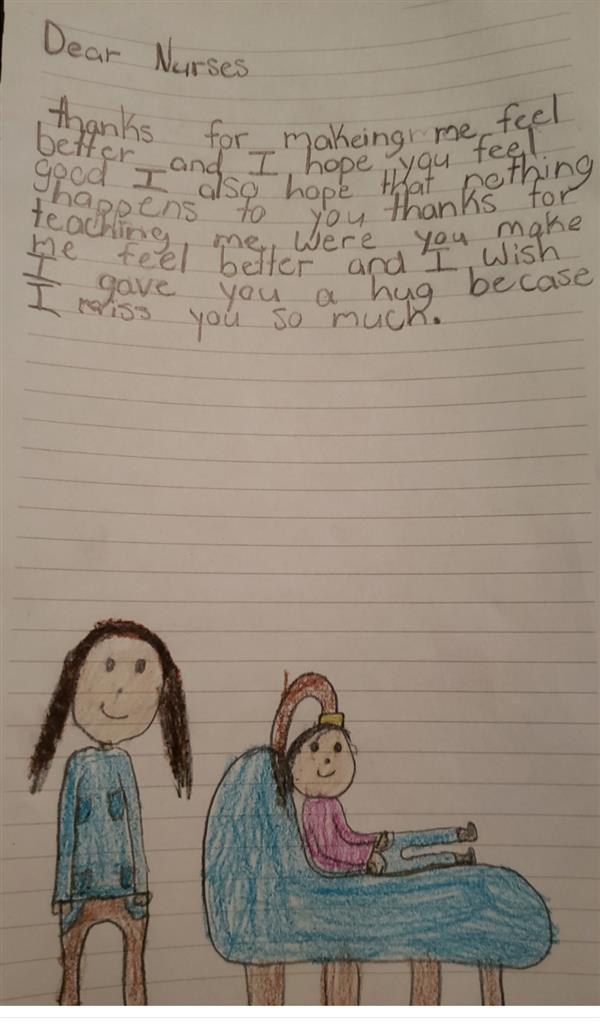 Dear Nurses
thanks for makeing me feel
better and I hope you feel
good I also hope that nothing
happens to you thanks for
teaching me were you make
me feel better and I wish
I gave you a hug becase
I miss you so much.